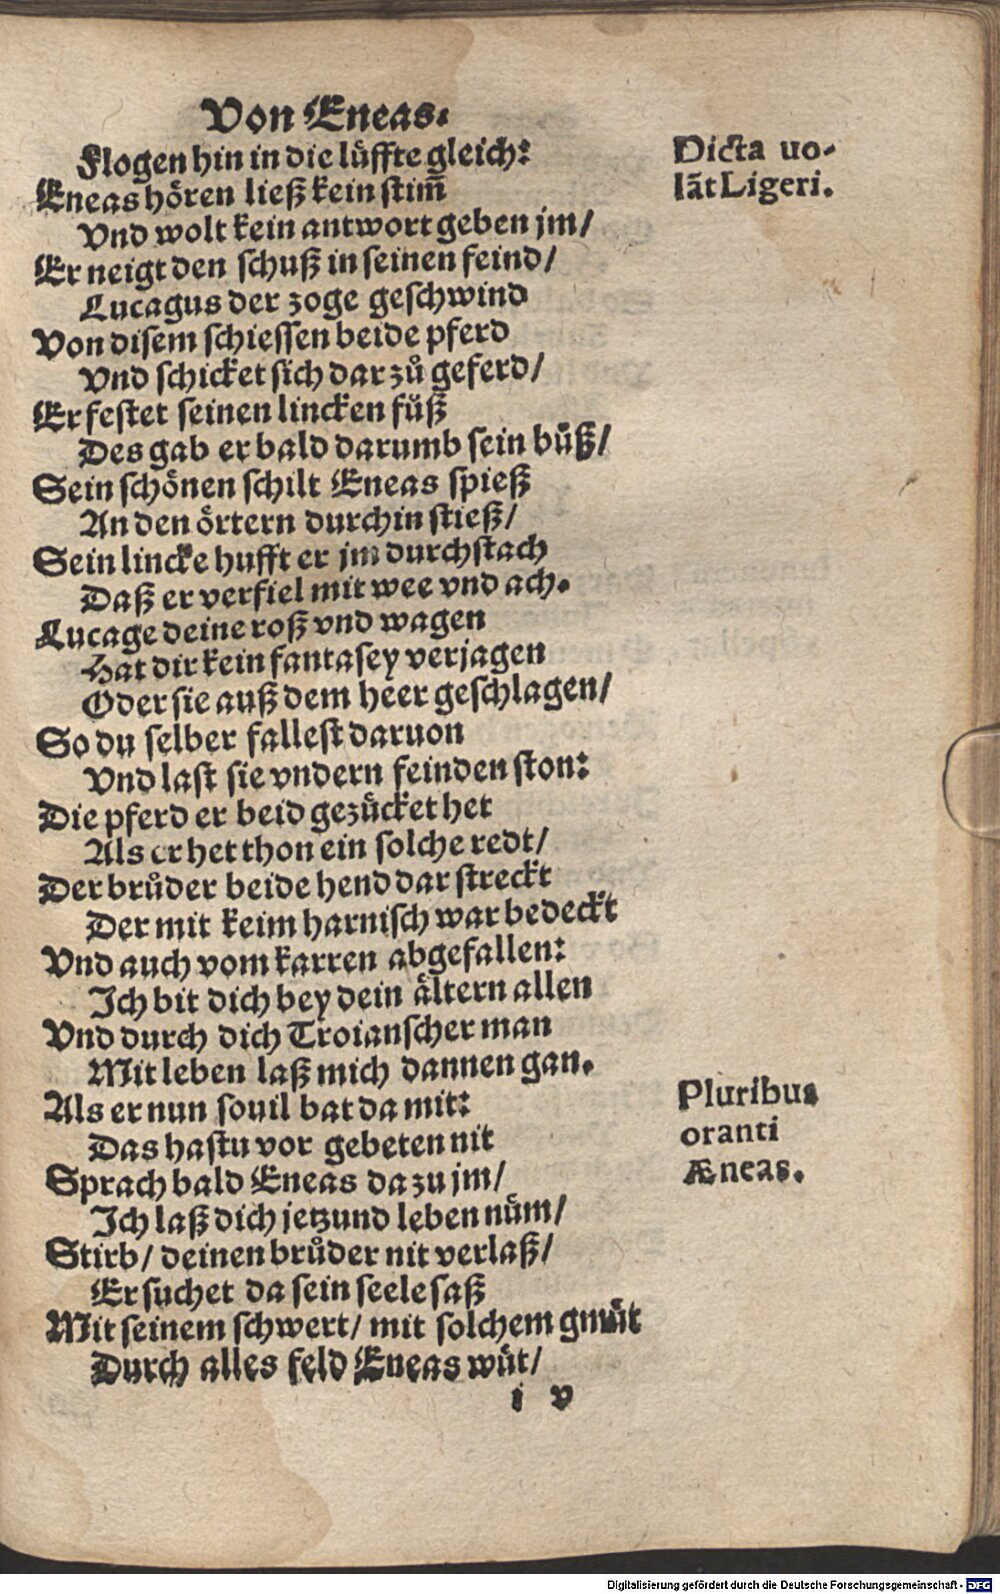 Von Eneas.
Flogen hin in die lüffte gleich:
Eneas hören ließ kein stim̄
Vnd wolt kein antwort geben jm/
Er neigt den schuß in seinen feind/
Lucagus der zoge geschwind
Von disem schiessen beide pferd
Vnd schicket sich dar zů geferd/
Er festet seinen lincken fůß
Des gab er bald darumb sein bůß/
Sein schönen schilt Eneas spieß
An den örtern durchin stieß/
Sein lincke hufft er jm durchstach
Daß er verfiel mit wee vnd ach.
Lucage deine roß vnd wagen
Hat dir kein fantasey verjagen
Oder sie auß dem heer geschlagen/
So du selber fallest daruon
Vnd last sie vndern feinden ston:
Die pferd er beid gezücket het
Als er het thon ein solche redt/
Der brůder beide hend dar streckt
Der mit keim harnisch war bedeckt
Vnd auch vom karren abgefallen:
Ich bit dich bey dein ältern allen
Vnd durch dich Troianscher man
Mit leben laß mich dannen gan.
Als er nun souil bat da mit:
Das hastu vor gebeten nit
Sprach bald Eneas da zu jm/
Ich laß dich jetzund leben nüm/
Stirb/ deinen brůder nit verlaß/
Er suchet da sein seele saß
Mit seinem schwert/ mit solchem gmüt
Durch alles feld Eneas wüt/
i v
Dicta uo-
lāt Ligeri.
Pluribus
oranti
Æneas.
Digitalisierung gefördert durch die Deutsche Forschungsgemeinschaft - DFG